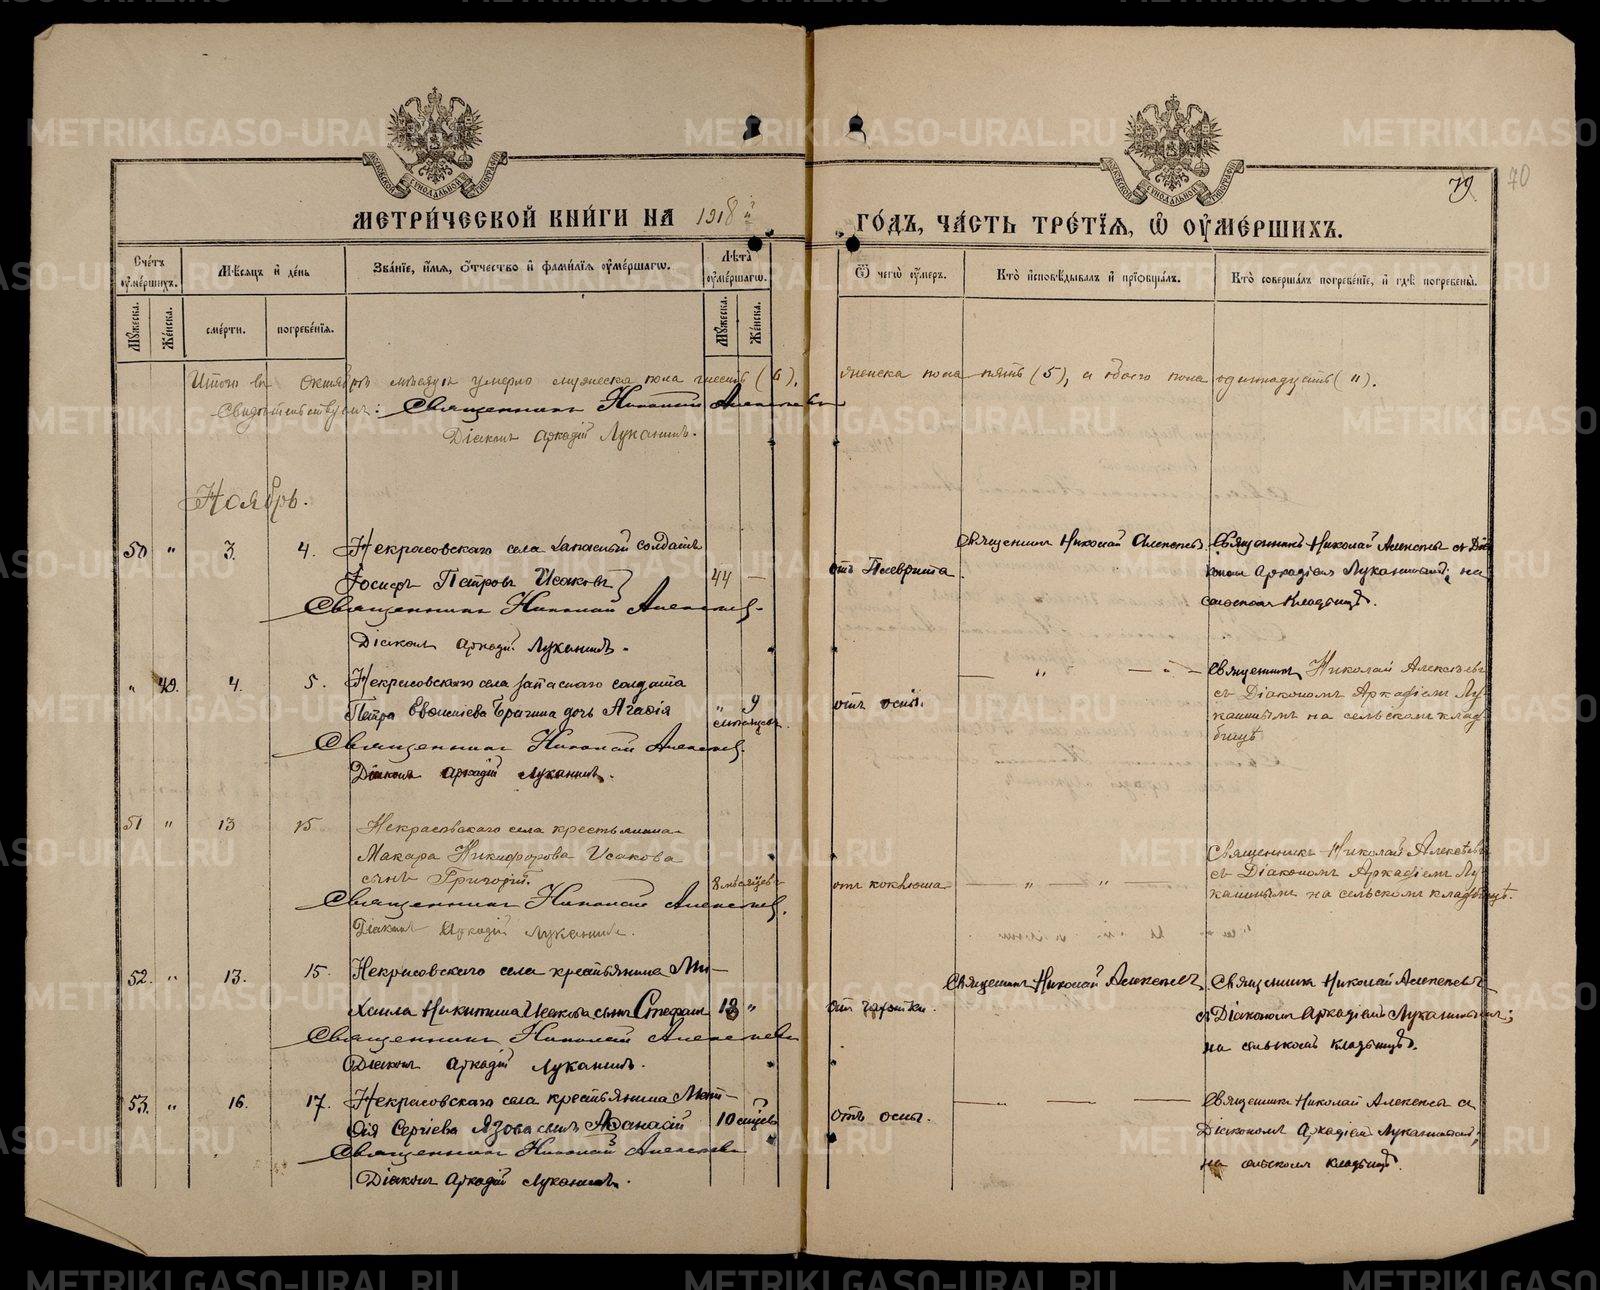 METRIKI.GASO-URAL.RU
79
70
МЕТРИ́ЧЕСКОЙ КНИ́ГИ НА 1918й ГО́ДЪ, ЧА́СТЬ ТРЕ́ТІЯ, Ѽ ОУМЕ́РШИХЪ.
Сче́тъ оуме́ршихъ.
Мѣ́сяцъ и де́нь
Зва́ніе, и́мя, о́тчество и фами́лія оуме́ршагѡ.
Лѣ́та оуме́ршагѡ.
Ѿ чегѡ̀ оу́меръ.
Кто̀ исповѣ́дывалъ и пріобща́лъ.
Кто̀ соверша́лъ погребе́ніе, и гдѣ̀ погребены̀.
Мꙋжеска.
Же́нска.
сме́рти.
погребе́нія.
Мꙋжеска.
Же́нска.
Итого въ Октябрѣ мѣсяцѣ умерло мужеска пола шесть (6), женска пола пять (5), а обоего пола одиннадцать (11).
Свидѣтельствуемъ: Священникъ Николай Алексѣевъ
Діаконъ Аркадій Луканинъ.
Ноябрь.
50 " 3. 4. Некрасовскаго села запасный солдатъ
Іосифъ Петровъ Исаковъ 44 —
Священникъ Николай Алексѣевъ.
Діаконъ Аркадій Луканинъ.
отъ Плеврита.
Священникъ Николай Алексѣевъ.
Священникъ Николай Алексѣевъ съ Діа-
кономъ Аркадіемъ Луканинымъ, на
сельскомъ кладбищѣ.
" 49. 4. 5. Некрасовскаго села запаснаго солдата
Петра Брагина дочь Агафія " 9
мѣсяцевъ.
Священникъ Николай Алексѣевъ.
Діаконъ Аркадій Луканинъ.
отъ оспы.
— " — " —
Священникъ Николай Алексѣевъ
съ Діакономъ Аркадіемъ Лу-
канинымъ на сельскомъ клад-
бищѣ
51 " 13 15 Некрасовскаго села крестьянина
Макара Никифорова Исакова
сынъ Григорій. 8 мѣсяцевъ
Священникъ Николай Алексѣевъ.
Діаконъ Аркадій Луканинъ.
отъ коклюша
— " — " —
Священникъ Николай Алексѣевъ
съ Діакономъ Аркадіемъ Лу-
канинымъ на сельскомъ кладбищѣ.
52. " 13. 15. Некрасовскаго села крестьянина Ми-
хаила Никитина Исакова сынъ Стефанъ 18 "
Священникъ Николай Алексѣевъ
Діаконъ Аркадій Луканинъ.
отъ чахотки.
Священникъ Николай Алексѣевъ.
Священникъ Николай Алексѣевъ
съ Діакономъ Аркадіемъ Луканинымъ;
на сельскомъ кладбищѣ.
53. " 16. 17. Некрасовскаго села крестьянина Мат-
фія Сергіева Язова сынъ Аѳанасій 10 мѣсяцевъ
Священникъ Николай Алексѣевъ
Діаконъ Аркадій Луканинъ.
отъ оспы.
— " — —
Священникъ Николай Алексѣевъ съ
Діакономъ Аркадіемъ Луканинымъ,
на сельскомъ кладбищѣ.